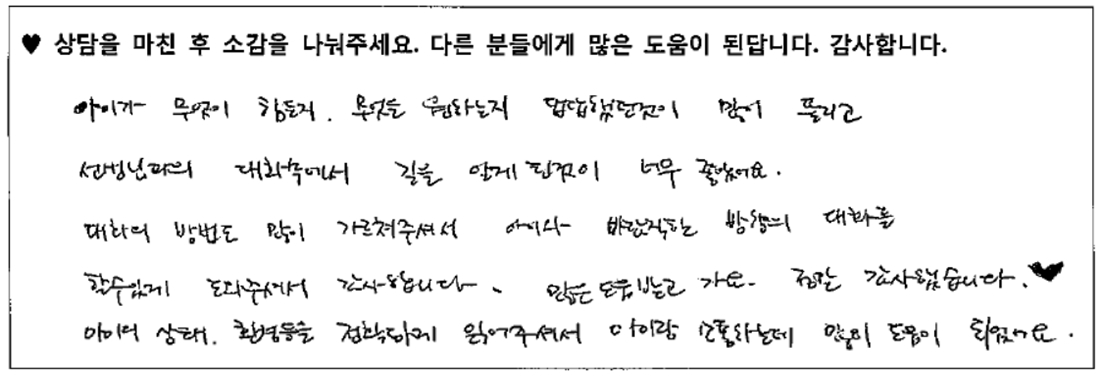 ♥ 상담을 마친 후 소감을 나눠주세요. 다른 분들에게 많은 도움이 된답니다. 감사합니다.
아이가 무엇이 힘든지. 무엇을 원하는지 답답했던것이 많이 풀리고
선생님과의 대화속에서 길을 알게 된것이 너무 좋았어요.
대화의 방법도 많이 가르쳐주셔서 아이와 바람직한 방향의 대화를
할수있게 도와주셔서 감사합니다. 많은 도움받고 가요. 정말 감사했습니다. ♥
아이의 상태. 환경등을 정확하게 읽어주셔서 아이랑 소통하는데 많이 도움이 되었어요.